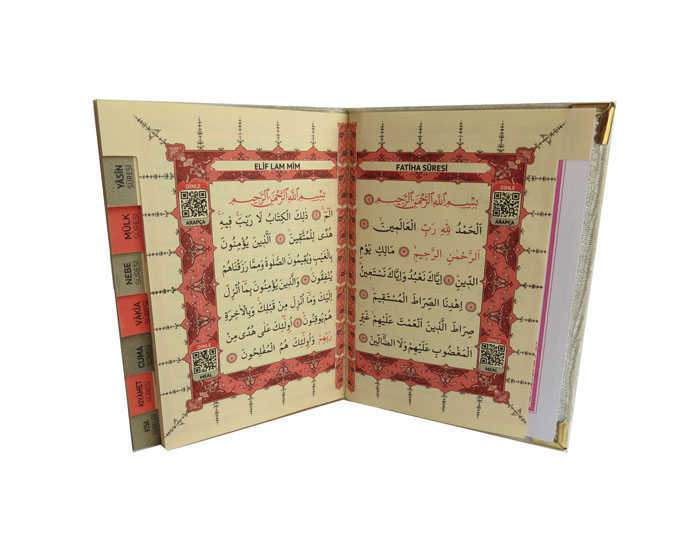 FATİHA SÛRESİ
DİNLE
ARAPÇA
بِسْمِ اللّٰهِ الرَّحْمٰنِ الرَّحِيمِ
اَلْحَمْدُ لِلّٰهِ رَبِّ الْعَالَمِينَ
اَلرَّحْمٰنِ الرَّحِيمِ مَالِكِ يَوْمِ
الدِّينِ اِيَّاكَ نَعْبُدُ وَاِيَّاكَ نَسْتَعِينُ
اِهْدِنَا الصِّرَاطَ الْمُسْتَقِيمَ
صِرَاطَ الَّذِينَ اَنْعَمْتَ عَلَيْهِمْ غَيْرِ
الْمَغْضُوبِ عَلَيْهِمْ وَلَا الضَّالِّينَ
MEAL
ELİF LAM MİM
DİNLE
ARAPÇA
بِسْمِ اللّٰهِ الرَّحْمٰنِ الرَّحِيمِ
الٓمٓ ذٰلِكَ الْكِتَابُ لَا رَيْبَ فِيهِ
هُدًى لِلْمُتَّقِينَ اَلَّذِينَ يُؤْمِنُونَ
بِالْغَيْبِ وَيُقِيمُونَ الصَّلٰوةَ وَمِمَّا رَزَقْنَاهُمْ
يُنْفِقُونَ وَالَّذِينَ يُؤْمِنُونَ بِمَا اُنْزِلَ
اِلَيْكَ وَمَا اُنْزِلَ مِنْ قَبْلِكَ وَبِالْاٰخِرَةِ
هُمْ يُوقِنُونَ اُولٰئِكَ عَلٰى هُدًى مِنْ
رَبِّهِمْ وَاُولٰئِكَ هُمُ الْمُفْلِحُونَ
DİNLE
MEAL
YÂSİN
SÛRESİ
MÜLK
SÛRESİ
NEBE
SÛRESİ
VAKIA
SÛRESİ
CUMA
SÛRESİ
KIYAMET
SÛRESİ
KISA